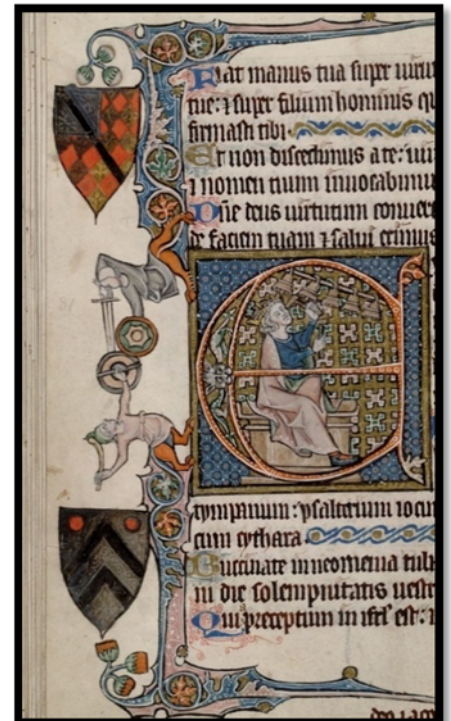 Fiat manus tua super uiru
tue: ⁊ super filium hominis qu
firmasti tibi.
Et non discedimus a te: uiui
⁊ nomen tuum inuocabimu
Dñe deus uirtutum conuer
de faciem tuam ⁊ salui erimus
E
tympanum: psalterium iocun
cum cythara.
Buccinate in neomenia tub
in die solempnitatis uestr
Qui preceptum in isrl est: ⁊